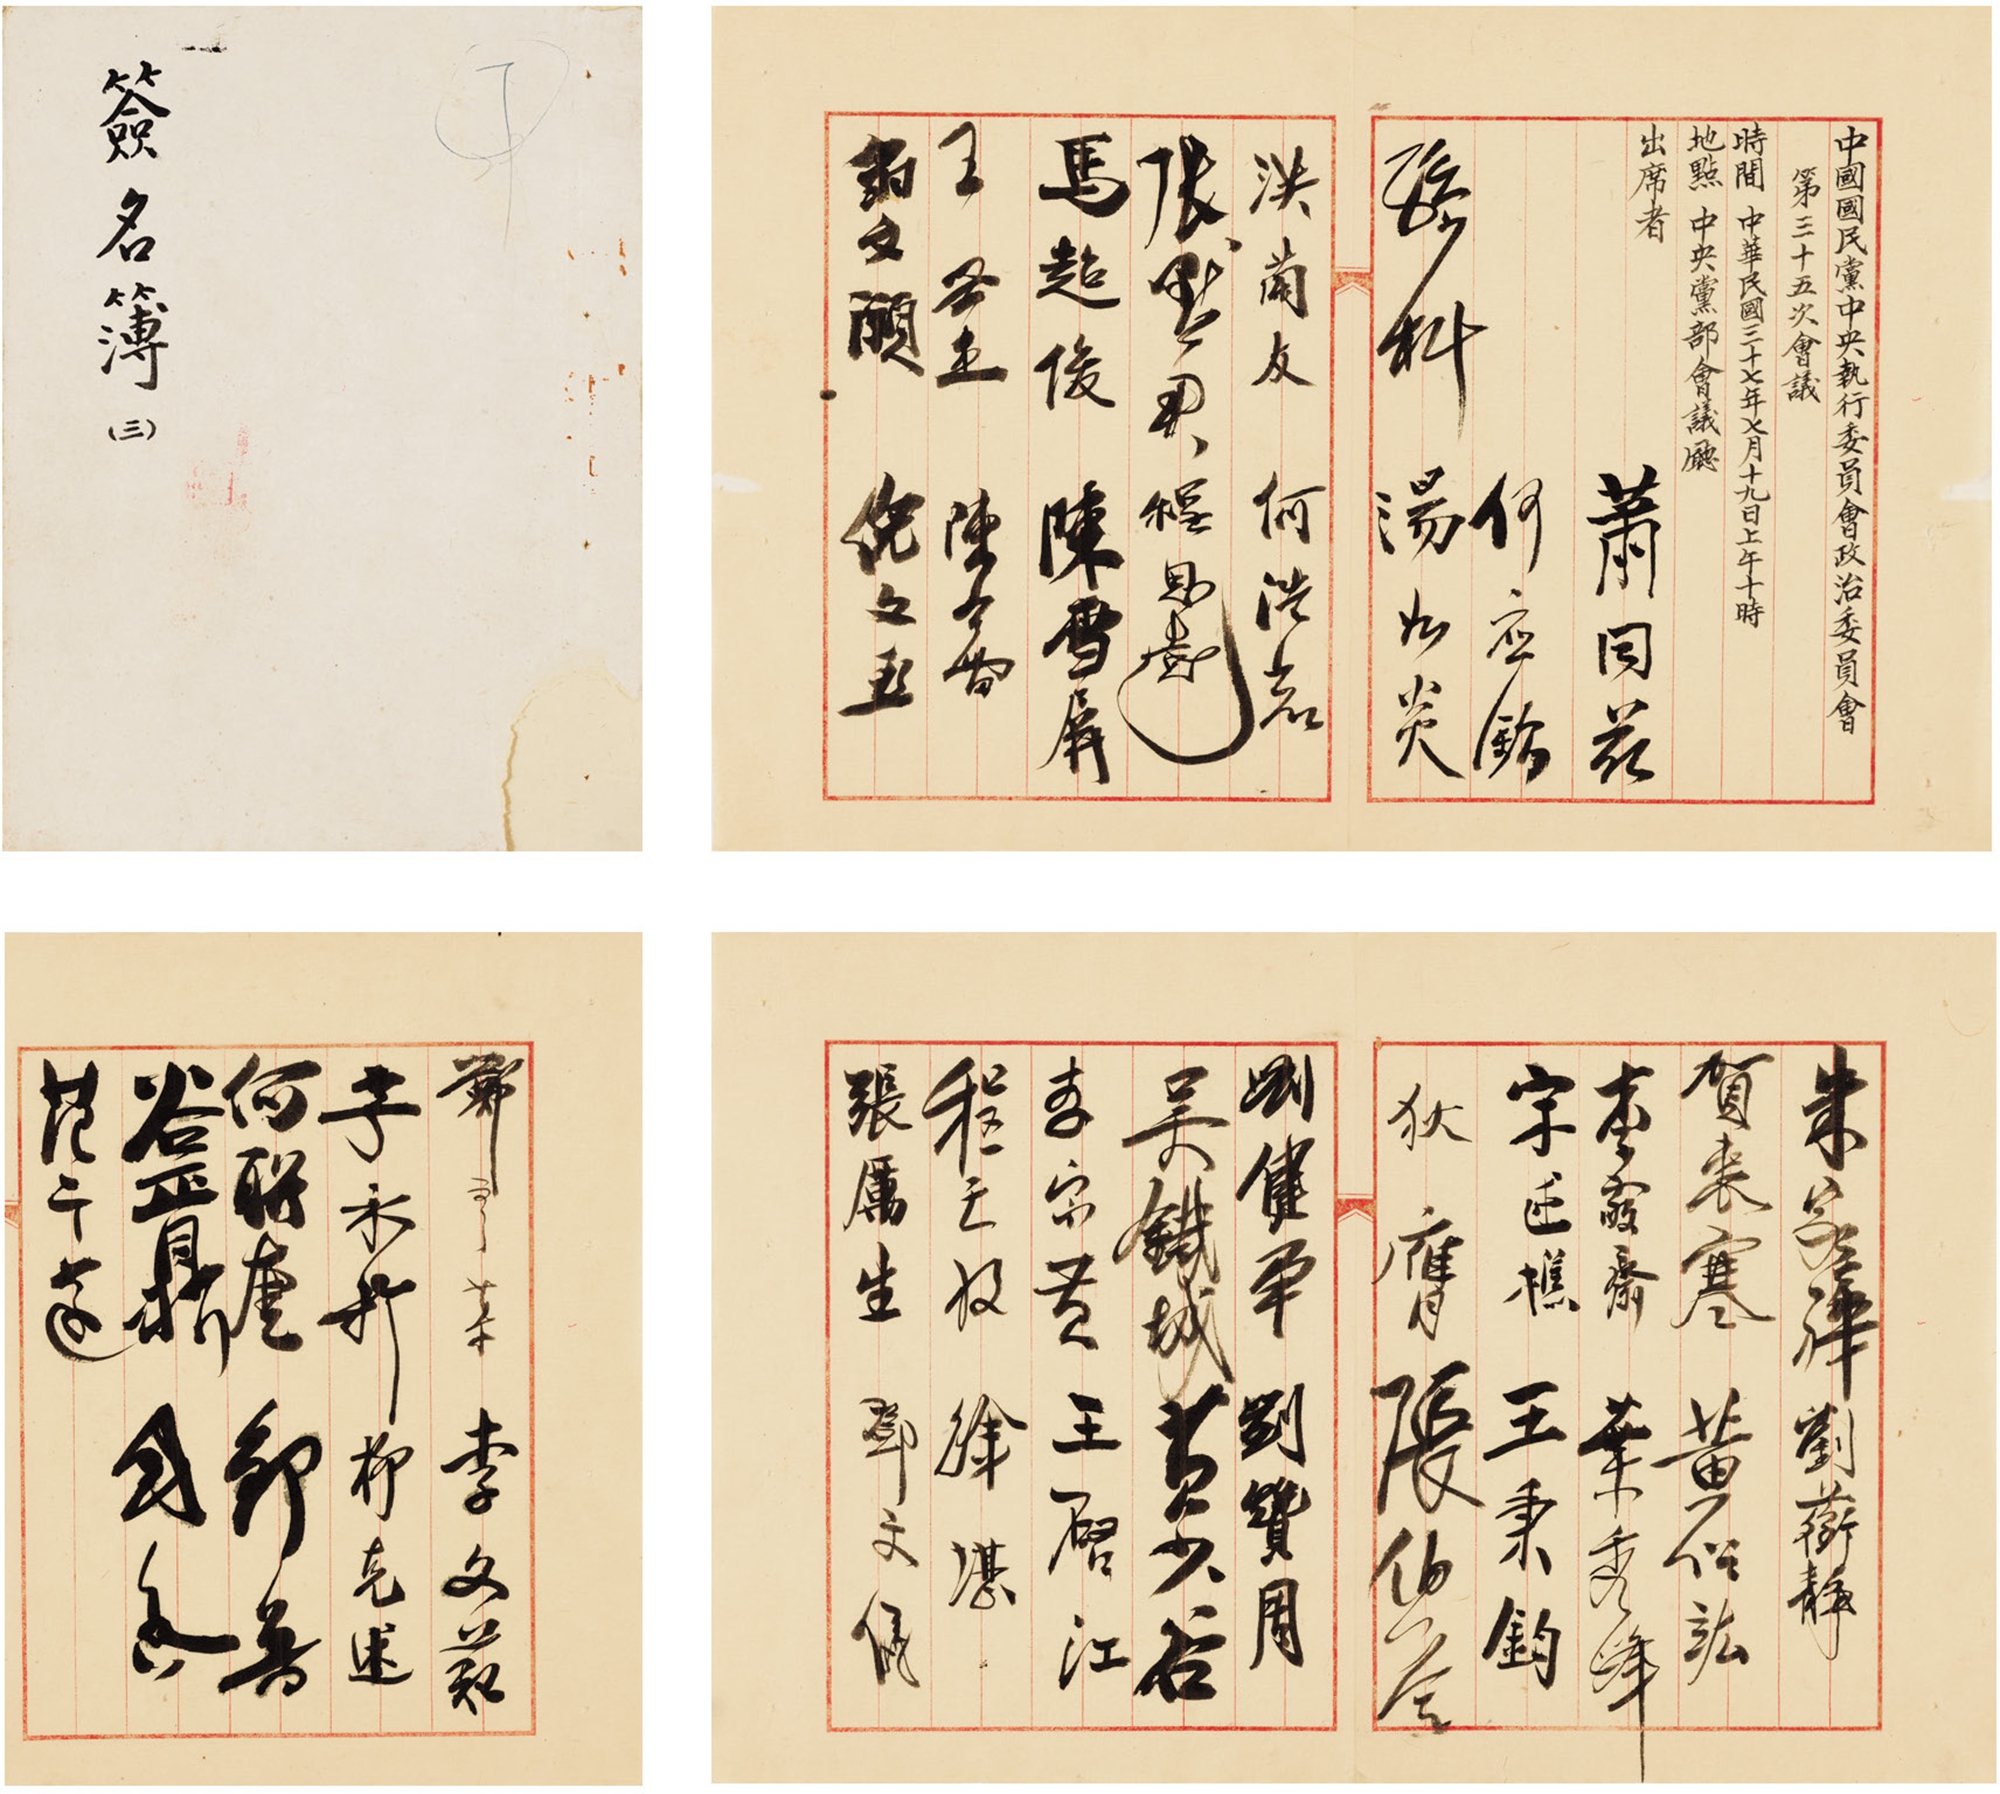 簽名簿
(三)
中國國民黨中央執行委員會政治委員會
第三十五次會議
時間 中華民國三十七年七月十九日上午十時
地點 中央黨部會議廳
出席者
蕭同茲
何應欽
孫科
湯如炎
洪蘭友
何浩若
張默君
程思遠
馬超俊
陳雪屏
王
陳
劉文
倪文亞
朱家驊
劉蘅靜
賀衷寒
黃伯
李敬齋
葉秀峰
宋延樵
王秉鈞
狄膺
張
劉健羣
劉贊周
吳鐵城
黃少谷
李宗黃
王啟江
程天放
徐堪
張厲生
鄧文儀
鄭彥棻
李文範
李永新
柳克述
何聯奎
鄧
谷正鼎
范予遂